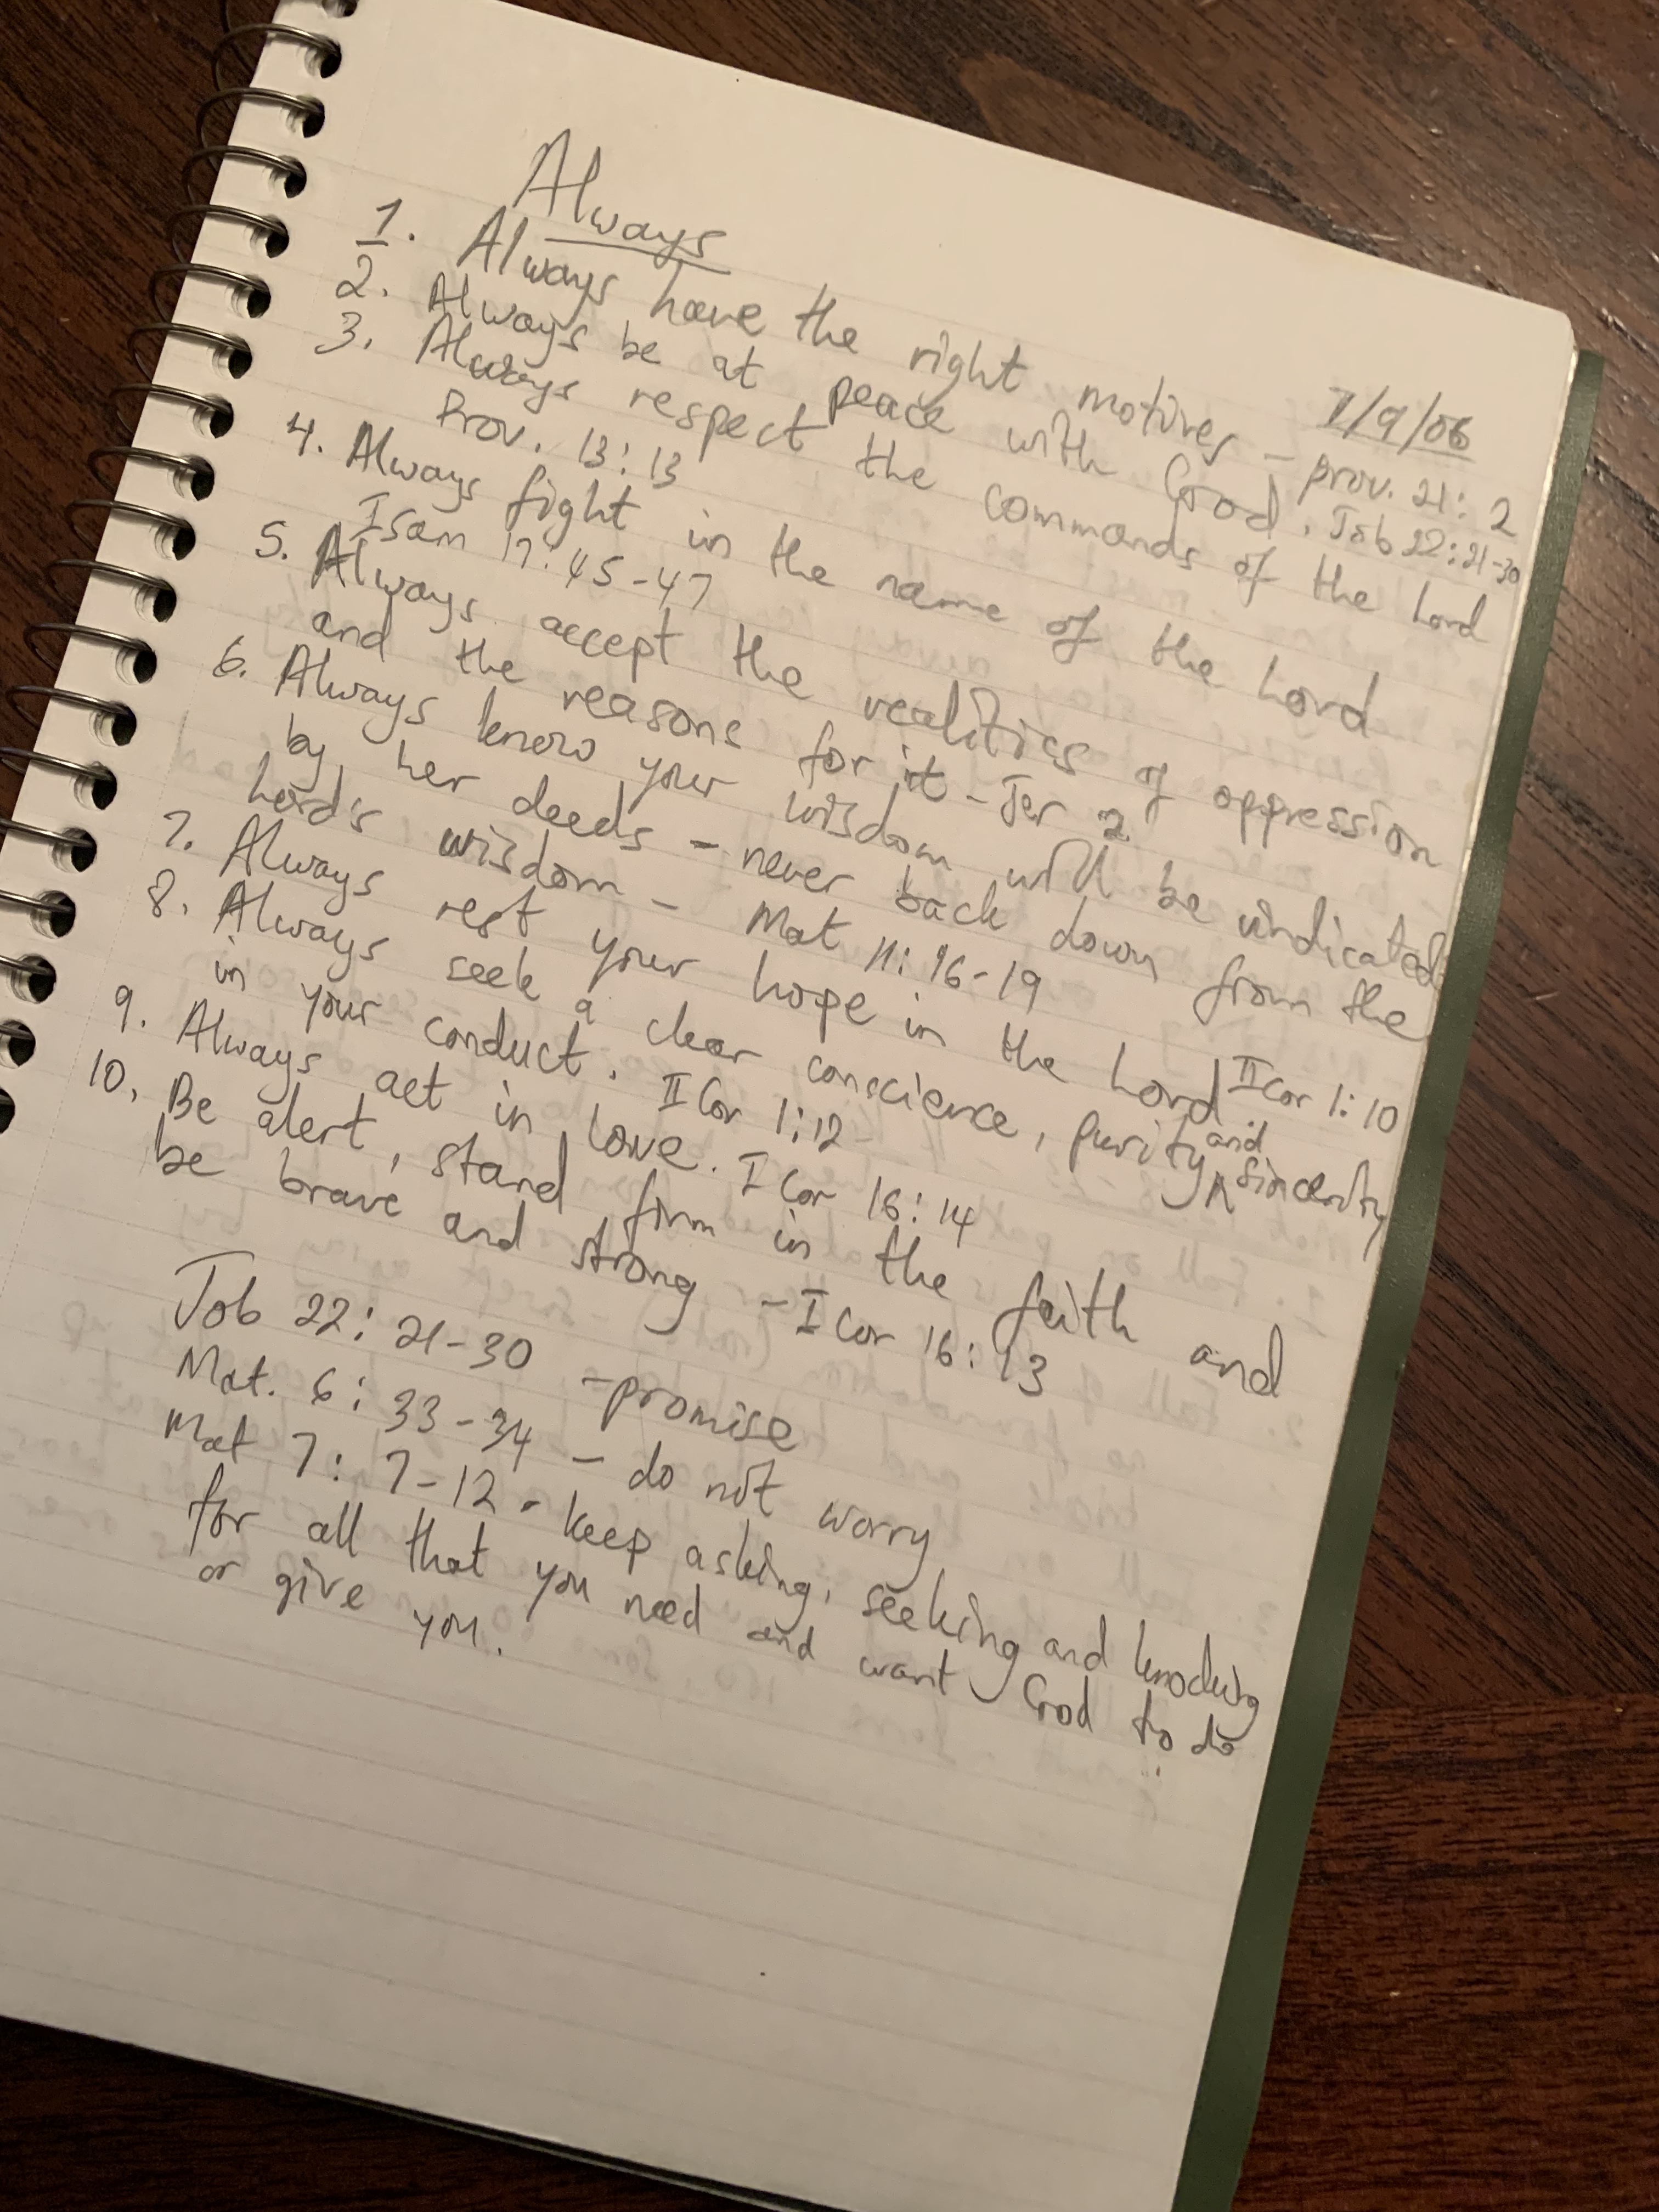 Always
7/9/06
1. Always have the right motives - prov. 21: 2
2. Always be at peace with God. Job 22:21-30
3. Always respect the commands of the Lord
Prov. 13:13
4. Always fight in the name of the Lord
I Sam 17:45-47
5. Always accept the realities of oppression
and the reasons for it - Jer 2
6. Always know your wisdom will be vindicated
by her deeds - never back down from the
Lord's wisdom - Mat 11:16-19
7. Always rest your hope in the Lord II Cor 1:10
8. Always seek a clear conscience, purity and sincerity
in your conduct. II Cor 1:12
9. Always act in love. I Cor 16:14
10. Be alert, stand firm in the faith and
be brave and strong - I Cor 16:13
Job 22:21-30 - promise
Mat. 6:33-34 - do not worry
Mat 7:7-12 - keep asking, seeking and knocking
for all that you need and want God to do
or give you.